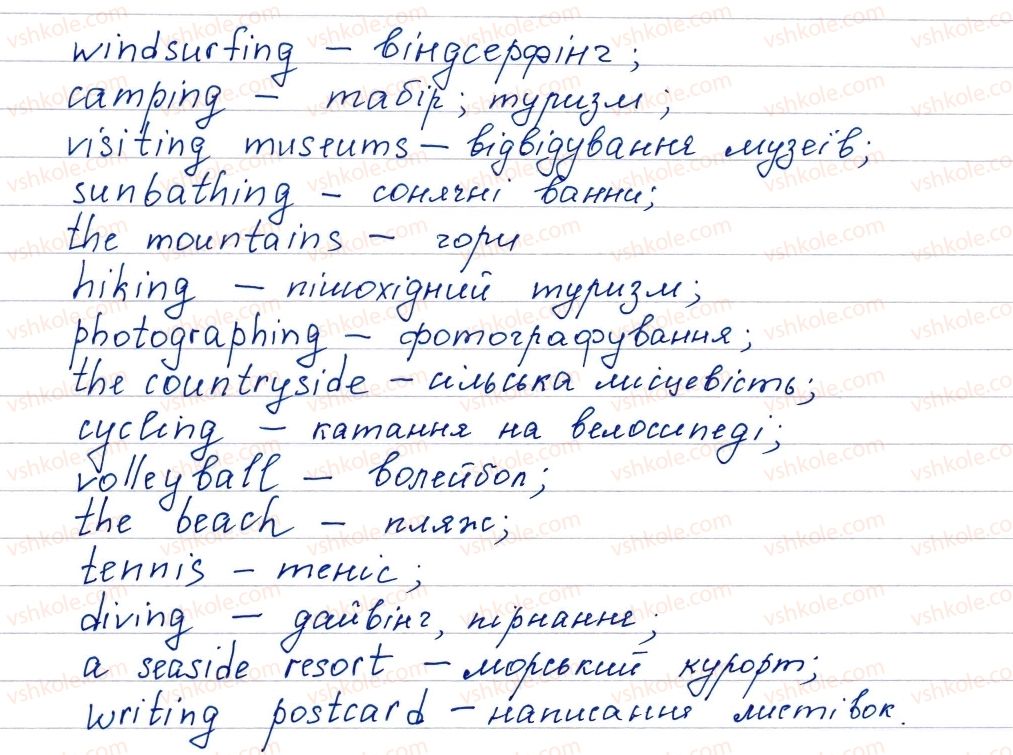 windsurfing – віндсерфінг;
camping – табір; туризм;
visiting museums – відвідування музеїв;
sunbathing – сонячні ванни;
the mountains – гори
hiking – пішохідний туризм;
photographing – фотографування;
the countryside – сільська місцевість;
cycling – катання на велосипеді;
volleyball – волейбол;
the beach – пляж;
tennis – теніс;
diving – дайвінг, пірнання;
a seaside resort – морський курорт;
writing postcard – написання листівок.